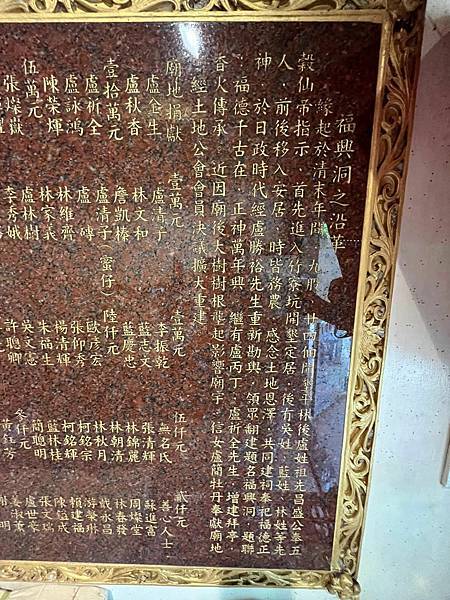 福興洞之沿革
緣起於清末年間 九股、廿四佃開墾平林後盧姓祖先昌盛公奉五
穀仙帝指示，首先進入竹寮坑開墾定居，後有吳姓、藍姓、林姓等先
人，前後移入安居，時皆務農，感念土地恩澤，共同建祠奉祀福德正
神，於日政時代經盧勝裕先生重新勘輿，領眾翻建題名福興洞，題聯
：福德千古在，正神萬年興，繼有盧丙丁、盧祈全先生，增建拜亭，
香火傳承，近因廟後大樹樹根壟起影響廟宇，信女盧簡牡丹奉獻廟地
經土地公會會員決議擴大重建
廟地捐獻
盧金生
盧秋香
壹拾萬元
盧祈全
盧詠鴻
陳榮煇
伍萬元
張燦嶽
壹萬元
盧清子
林文和
詹凱榛
盧清子(蜜仔)
盧磚
林維齊
林家義
盧林樹
李秀
壹萬元
李振乾
藍志文
藍慶忠
陸仟元
歐彥宏
張仰秀
楊清輝
朱福生
吳文憲
許聰卿
伍仟元
無名氏
張清輝
林錦麗
林朝清
林秋月
柯銘宗
柯銘輝
藍林桂
簡聰明
參仟元
黃鈺芳
貳仟元
善心人士
蘇進富
周燦堂
林春發
戴永昌
游榮琳
賴建福
陳鎧成
張文瑞
盧世豪
姜淑蕙
謝 明